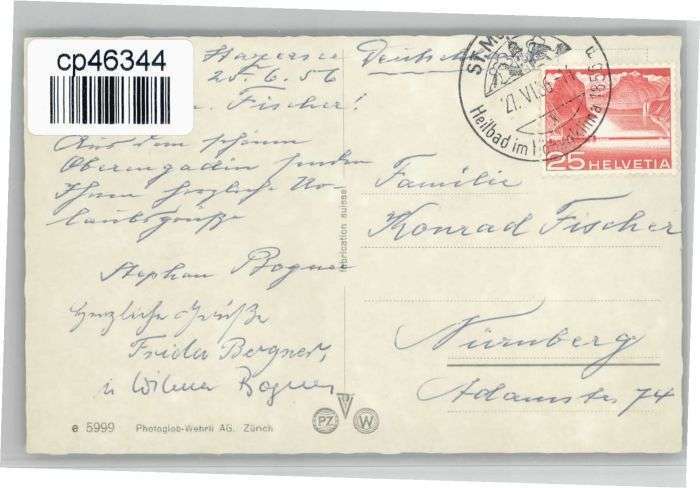 cp46344
25.6.56
Fischer!
Aus dem schönen
Oberengadin senden
Ihnen herzliche Ur-
laubsgrüße
Stephan Bogner
Herzliche Grüße
Frida Bogner,
u.
Bogner
e 5999 Photoglob-Wehrli AG. Zürich
Fabrication suisse
PZ W
ST. M
27.VI.56
Heilbad im
1856
25 HELVETIA
Familie
Konrad Fischer
Nürnberg
Adamstr 74